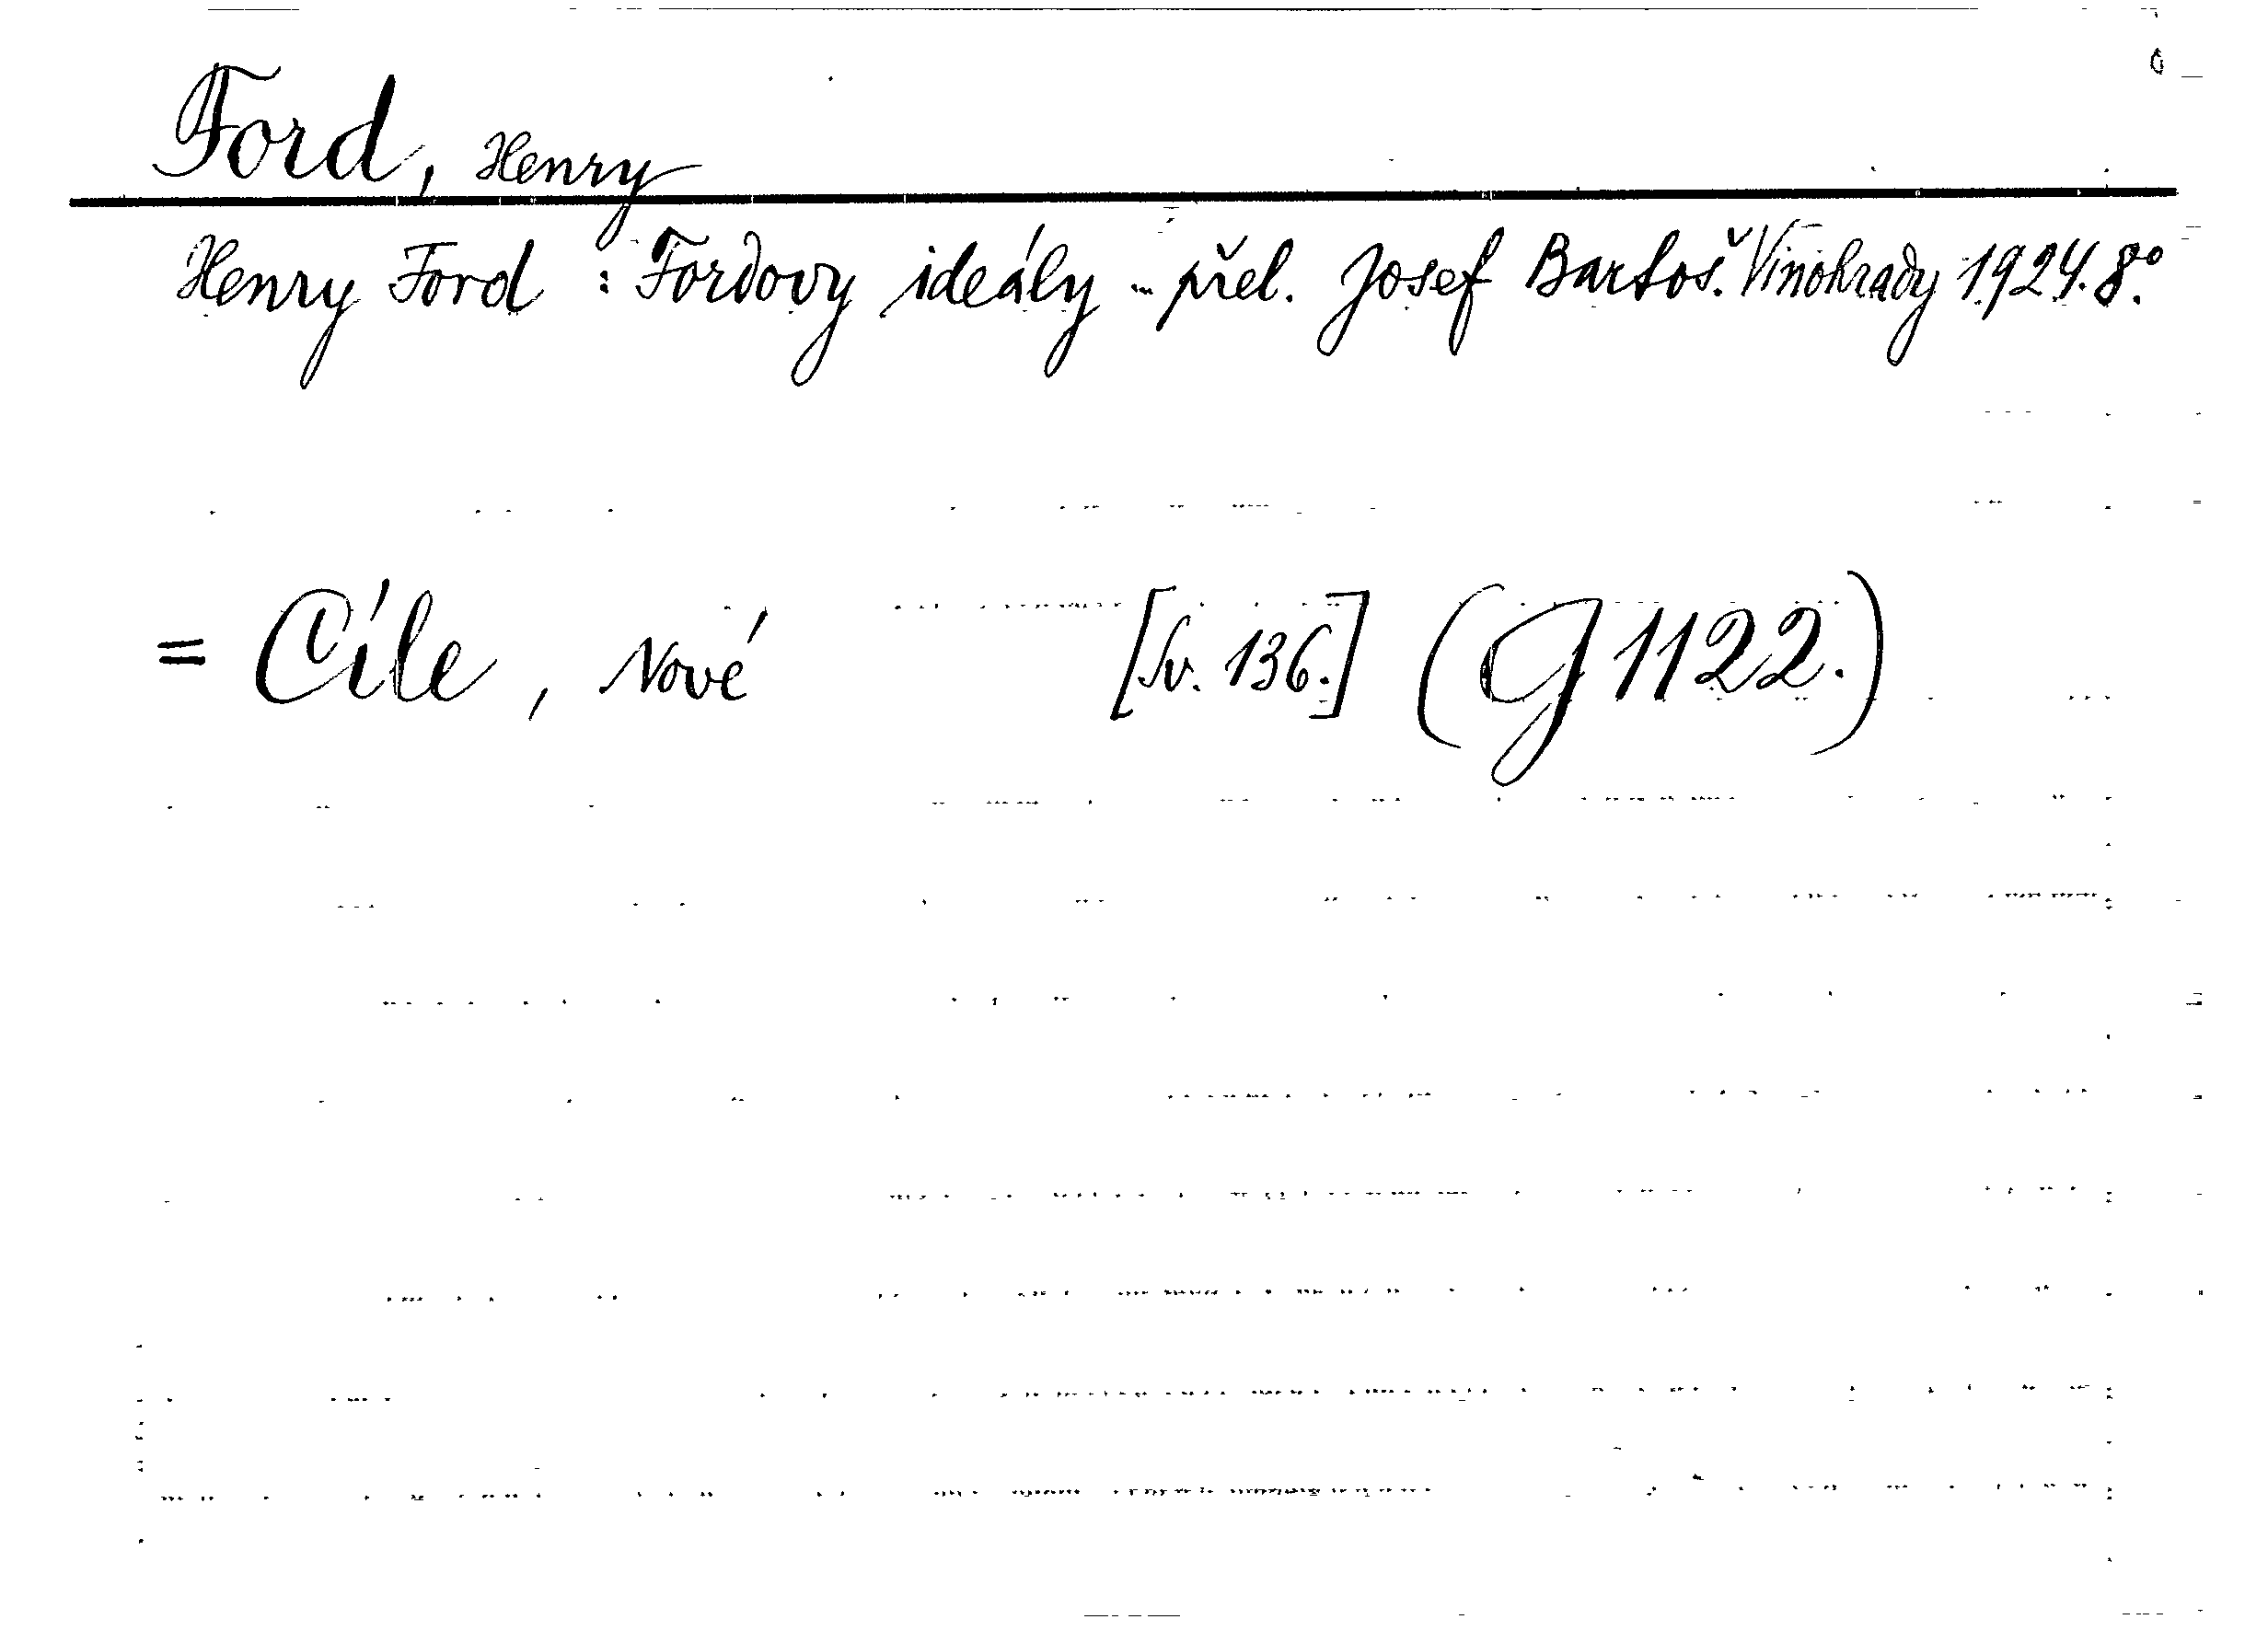 Ford, Henry
Henry Ford : Fordovy ideály ... přel. Josef Bartoš. Vinohrady 1924. 8°.
= Cíle, Nové [Sv. 136.] (G 1122.)